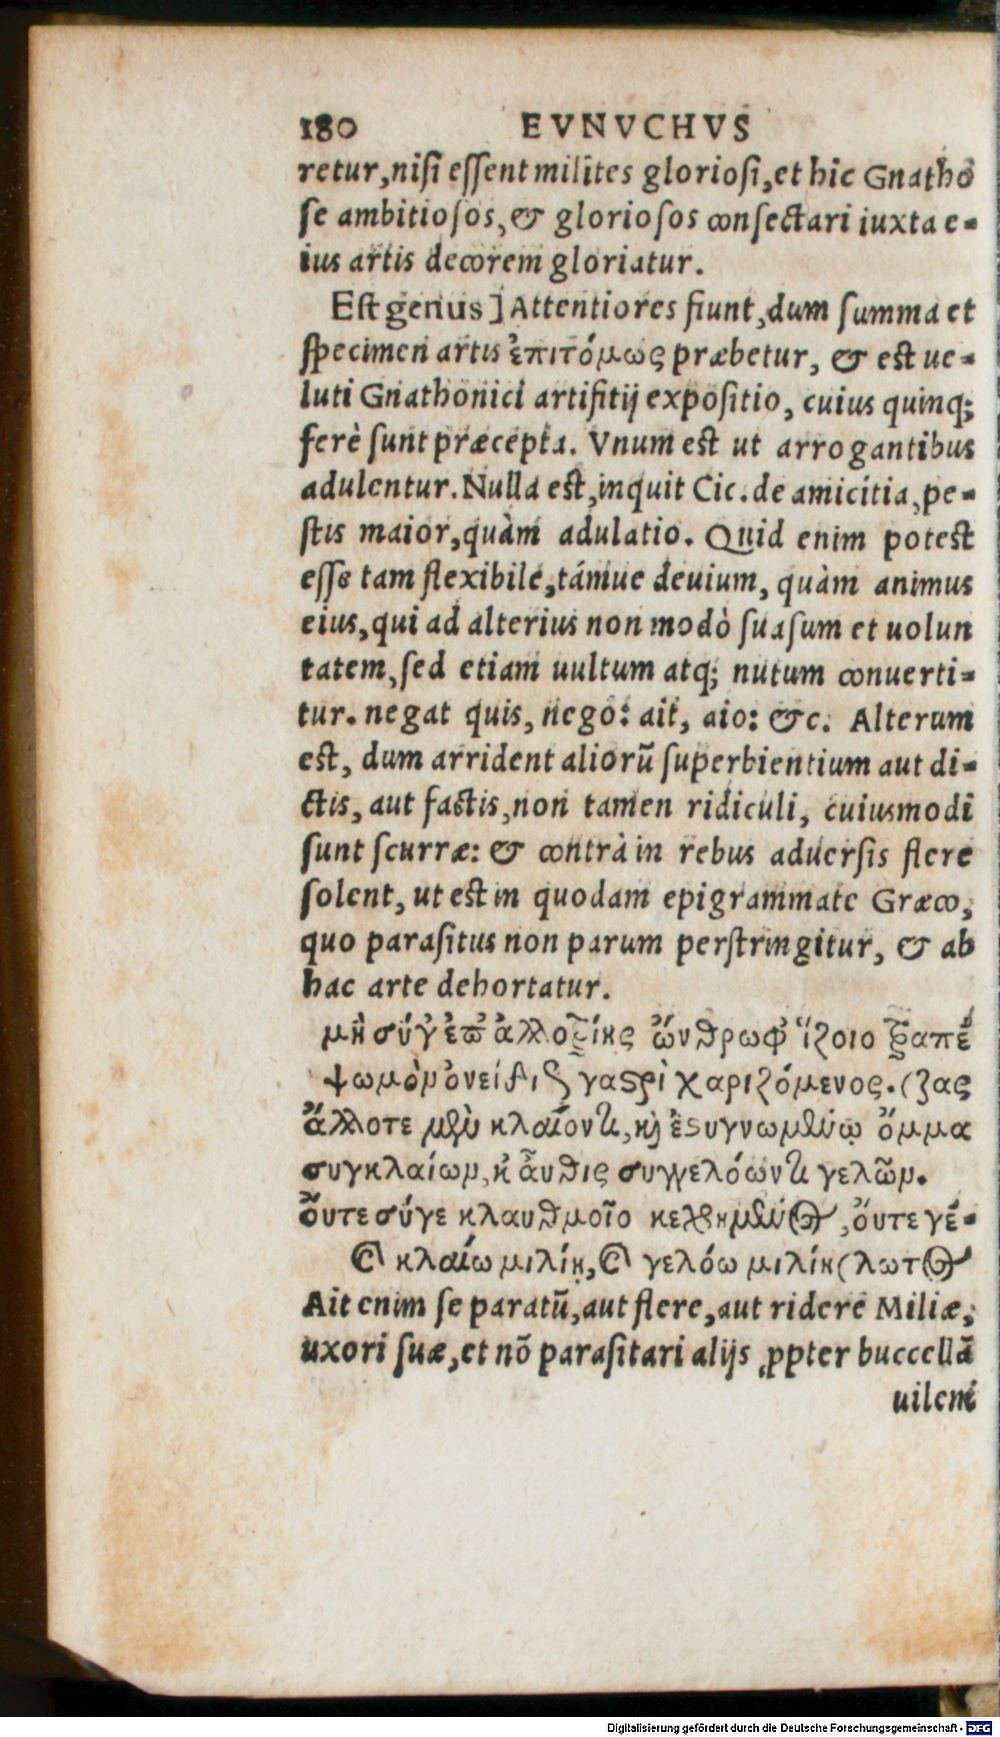 180 EVNVCHVS
retur, nisi essent milites gloriosi, et hic Gnatho
se ambitiosos, & gloriosos consectari iuxta e-
ius artis decorem gloriatur.
Est genus] Attentiores fiunt, dum summa et
specimen artis ἐπιτόμως præbetur, & est ue-
luti Gnathonici artifitij expositio, cuius quinq;
ferè sunt præcepta. Vnum est ut arrogantibus
adulentur. Nulla est, inquit Cic. de amicitia, pe-
stis maior, quàm adulatio. Quid enim potest
esse tam flexibile, támue deuium, quàm animus
eius, qui ad alterius non modò suasum et uolun
tatem, sed etiam uultum atq; nutum conuerti-
tur. negat quis, nego: ait, aio: &c. Alterum
est, dum arrident aliorū superbientium aut di-
ctis, aut factis, non tamen ridiculi, cuiusmodi
sunt scurræ: & contrà in rebus aduersis flere
solent, ut est in quodam epigrammate Græco,
quo parasitus non parum perstringitur, & ab
hac arte dehortatur.
μὴ σύγ' ἐπ' ἀλλοτρίης ὤνθρωφ' ἵζοιο τραπέ
ψωμὸν ὀνείδειον γαστρὶ χαριζόμενος. (ζας
ἄλλοτε μὲν κλαίοντι, καὶ ἐστυγνωμένῳ ὄμμα
συγκλαίων, κ' αὖθις συγγελόωντι γελῶν.
οὔτε σύγε κλαυθμοῖο κεχρημένος, οὔτε γέ-
καὶ κλαίω μιλίῃ, καὶ γελόω μιλίῃ (λωτος
Ait enim se paratū, aut flere, aut ridere Miliæ,
uxori suæ, et nō parasitari alijs ꝓpter buccellā
uilem
Digitalisierung gefördert durch die Deutsche Forschungsgemeinschaft - DFG